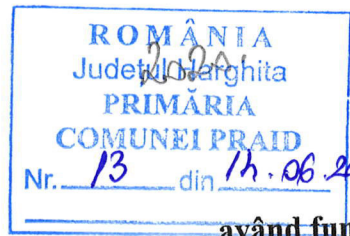 ROMÂNIA
Județul Harghita
PRIMĂRIA
COMUNEI PRAID
Nr. 13 din 06.2
având fun